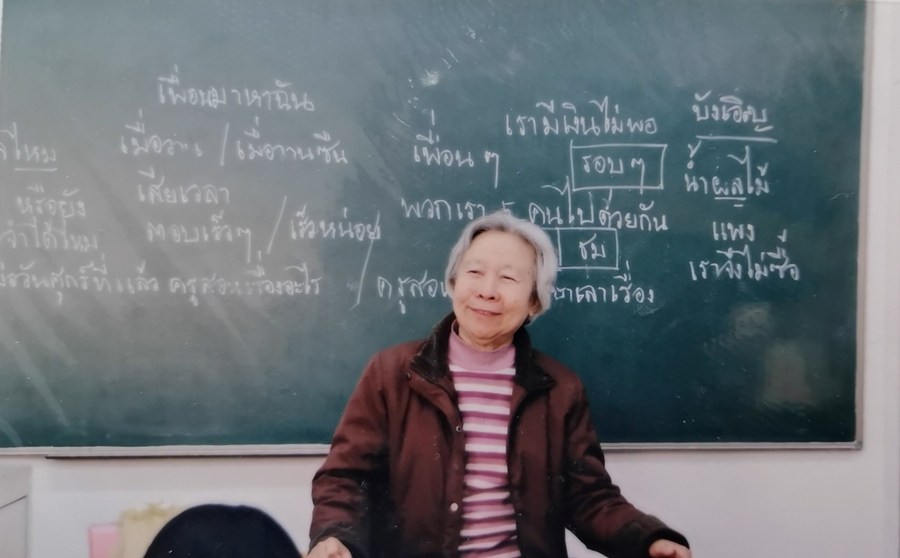 เพื่อนมาหาฉัน
ไหม
เมื่อวาน / เมื่อวานซืน
หรือยัง
เสียเวลา
จำได้ไหม
ตอบเร็วๆ / เร็วหน่อย
วันศุกร์ที่แล้ว ครูสอนเรื่องอะไร / ครูสอน
เล่าเรื่อง
เรามีเงินไม่พอ
เพื่อนๆ
รอบๆ
พวกเรา 5 คนไปด้วยกัน
ชม
บังเอิญ
น้ำผลไม้
แพง
เราจึงไม่ซื้อ